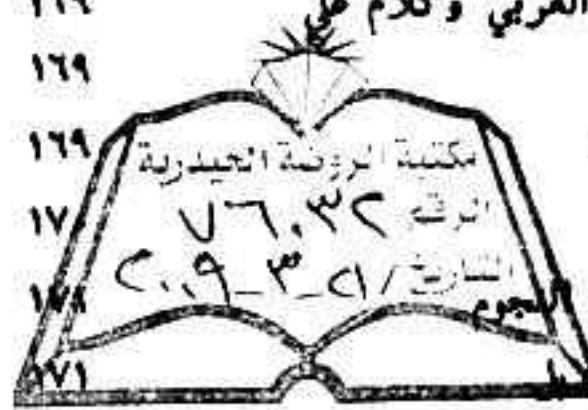 العربي وكلام على ١٦٩
١٦٩
١٦٩
مكتبة الروضة الحيدرية
الرقم ٧٦٠٣٢
التاريخ ٢١-٣-٢٠٠٩
النجوم
١٧١